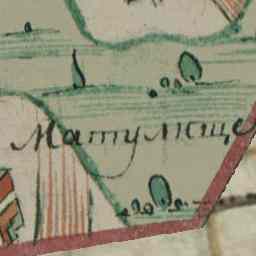 Матулище